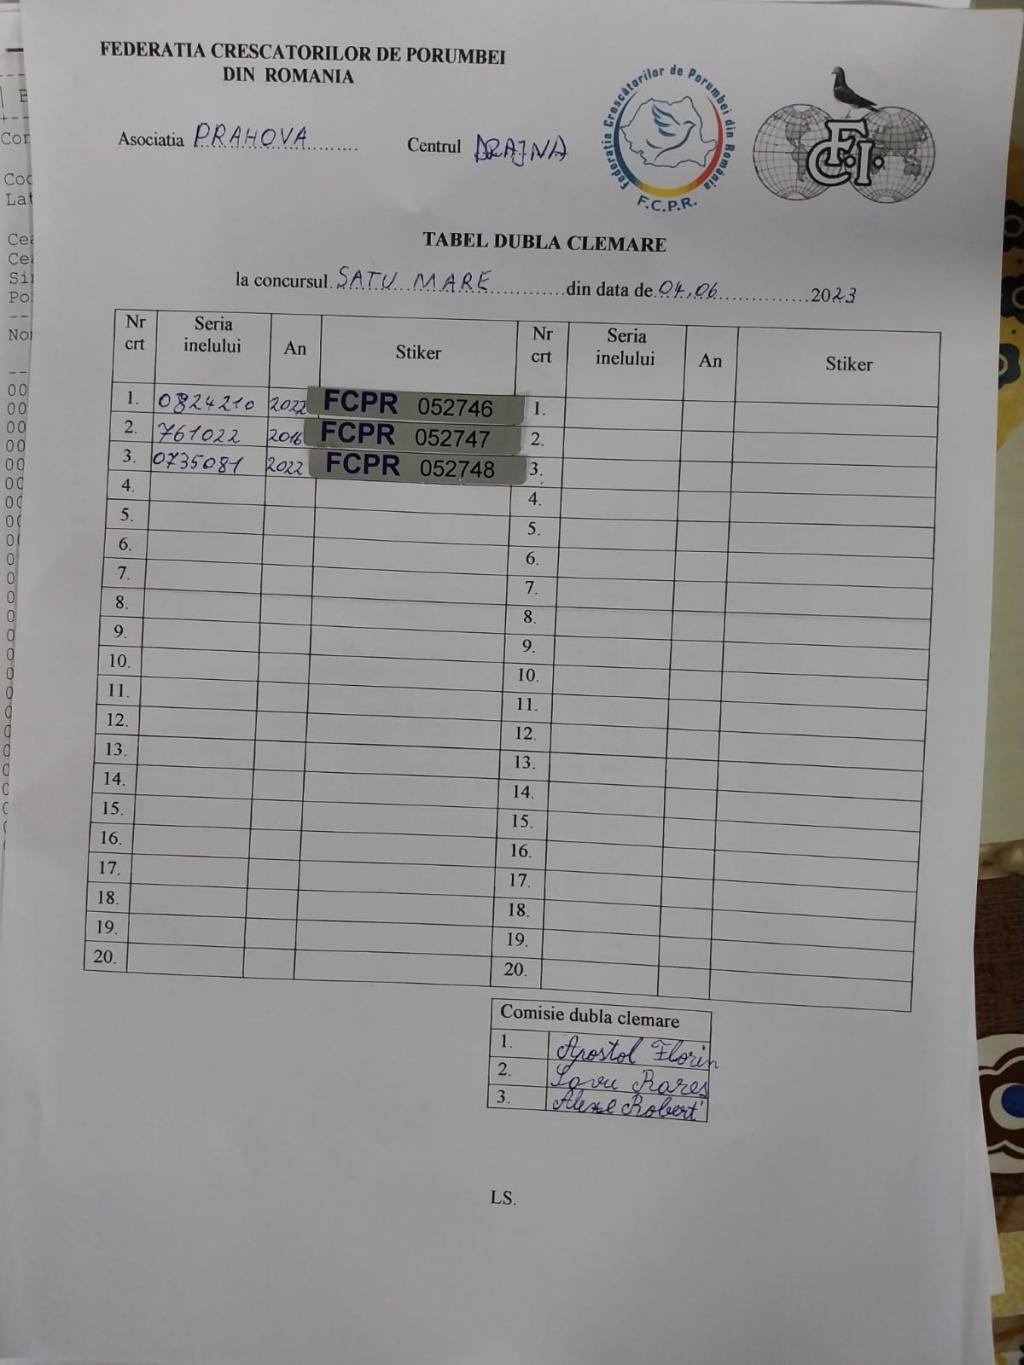 FEDERATIA CRESCATORILOR DE PORUMBEI
DIN ROMANIA
Asociatia PRAHOVA
Centrul DRAJNA
Federatia Crescătorilor de Porumbei din România
F.C.P.R.
F.C.I.
TABEL DUBLA CLEMARE
la concursul SATU MARE din data de 04.06 2023
Nr crt Seria inelului An Stiker Nr crt Seria inelului An Stiker
1. 0824210 2022 FCPR 052746 1.
2. 761022 2016 FCPR 052747 2.
3. 0735081 2022 FCPR 052748 3.
4. 4.
5. 5.
6. 6.
7. 7.
8. 8.
9. 9.
10. 10.
11. 11.
12. 12.
13. 13.
14. 14.
15. 15.
16. 16.
17. 17.
18. 18.
19. 19.
20. 20.
Comisie dubla clemare
1. Apostol Florin
2. Savu Rares
3. Alexe Robert
LS.